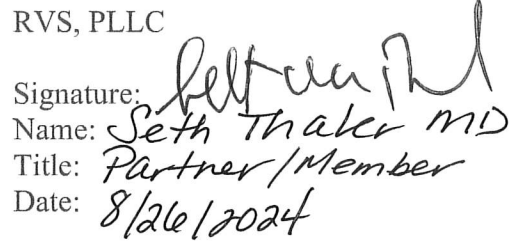 RVS, PLLC
Signature:
Name: Seth Thaker MD
Title: Partner/Member
Date: 8/26/2024